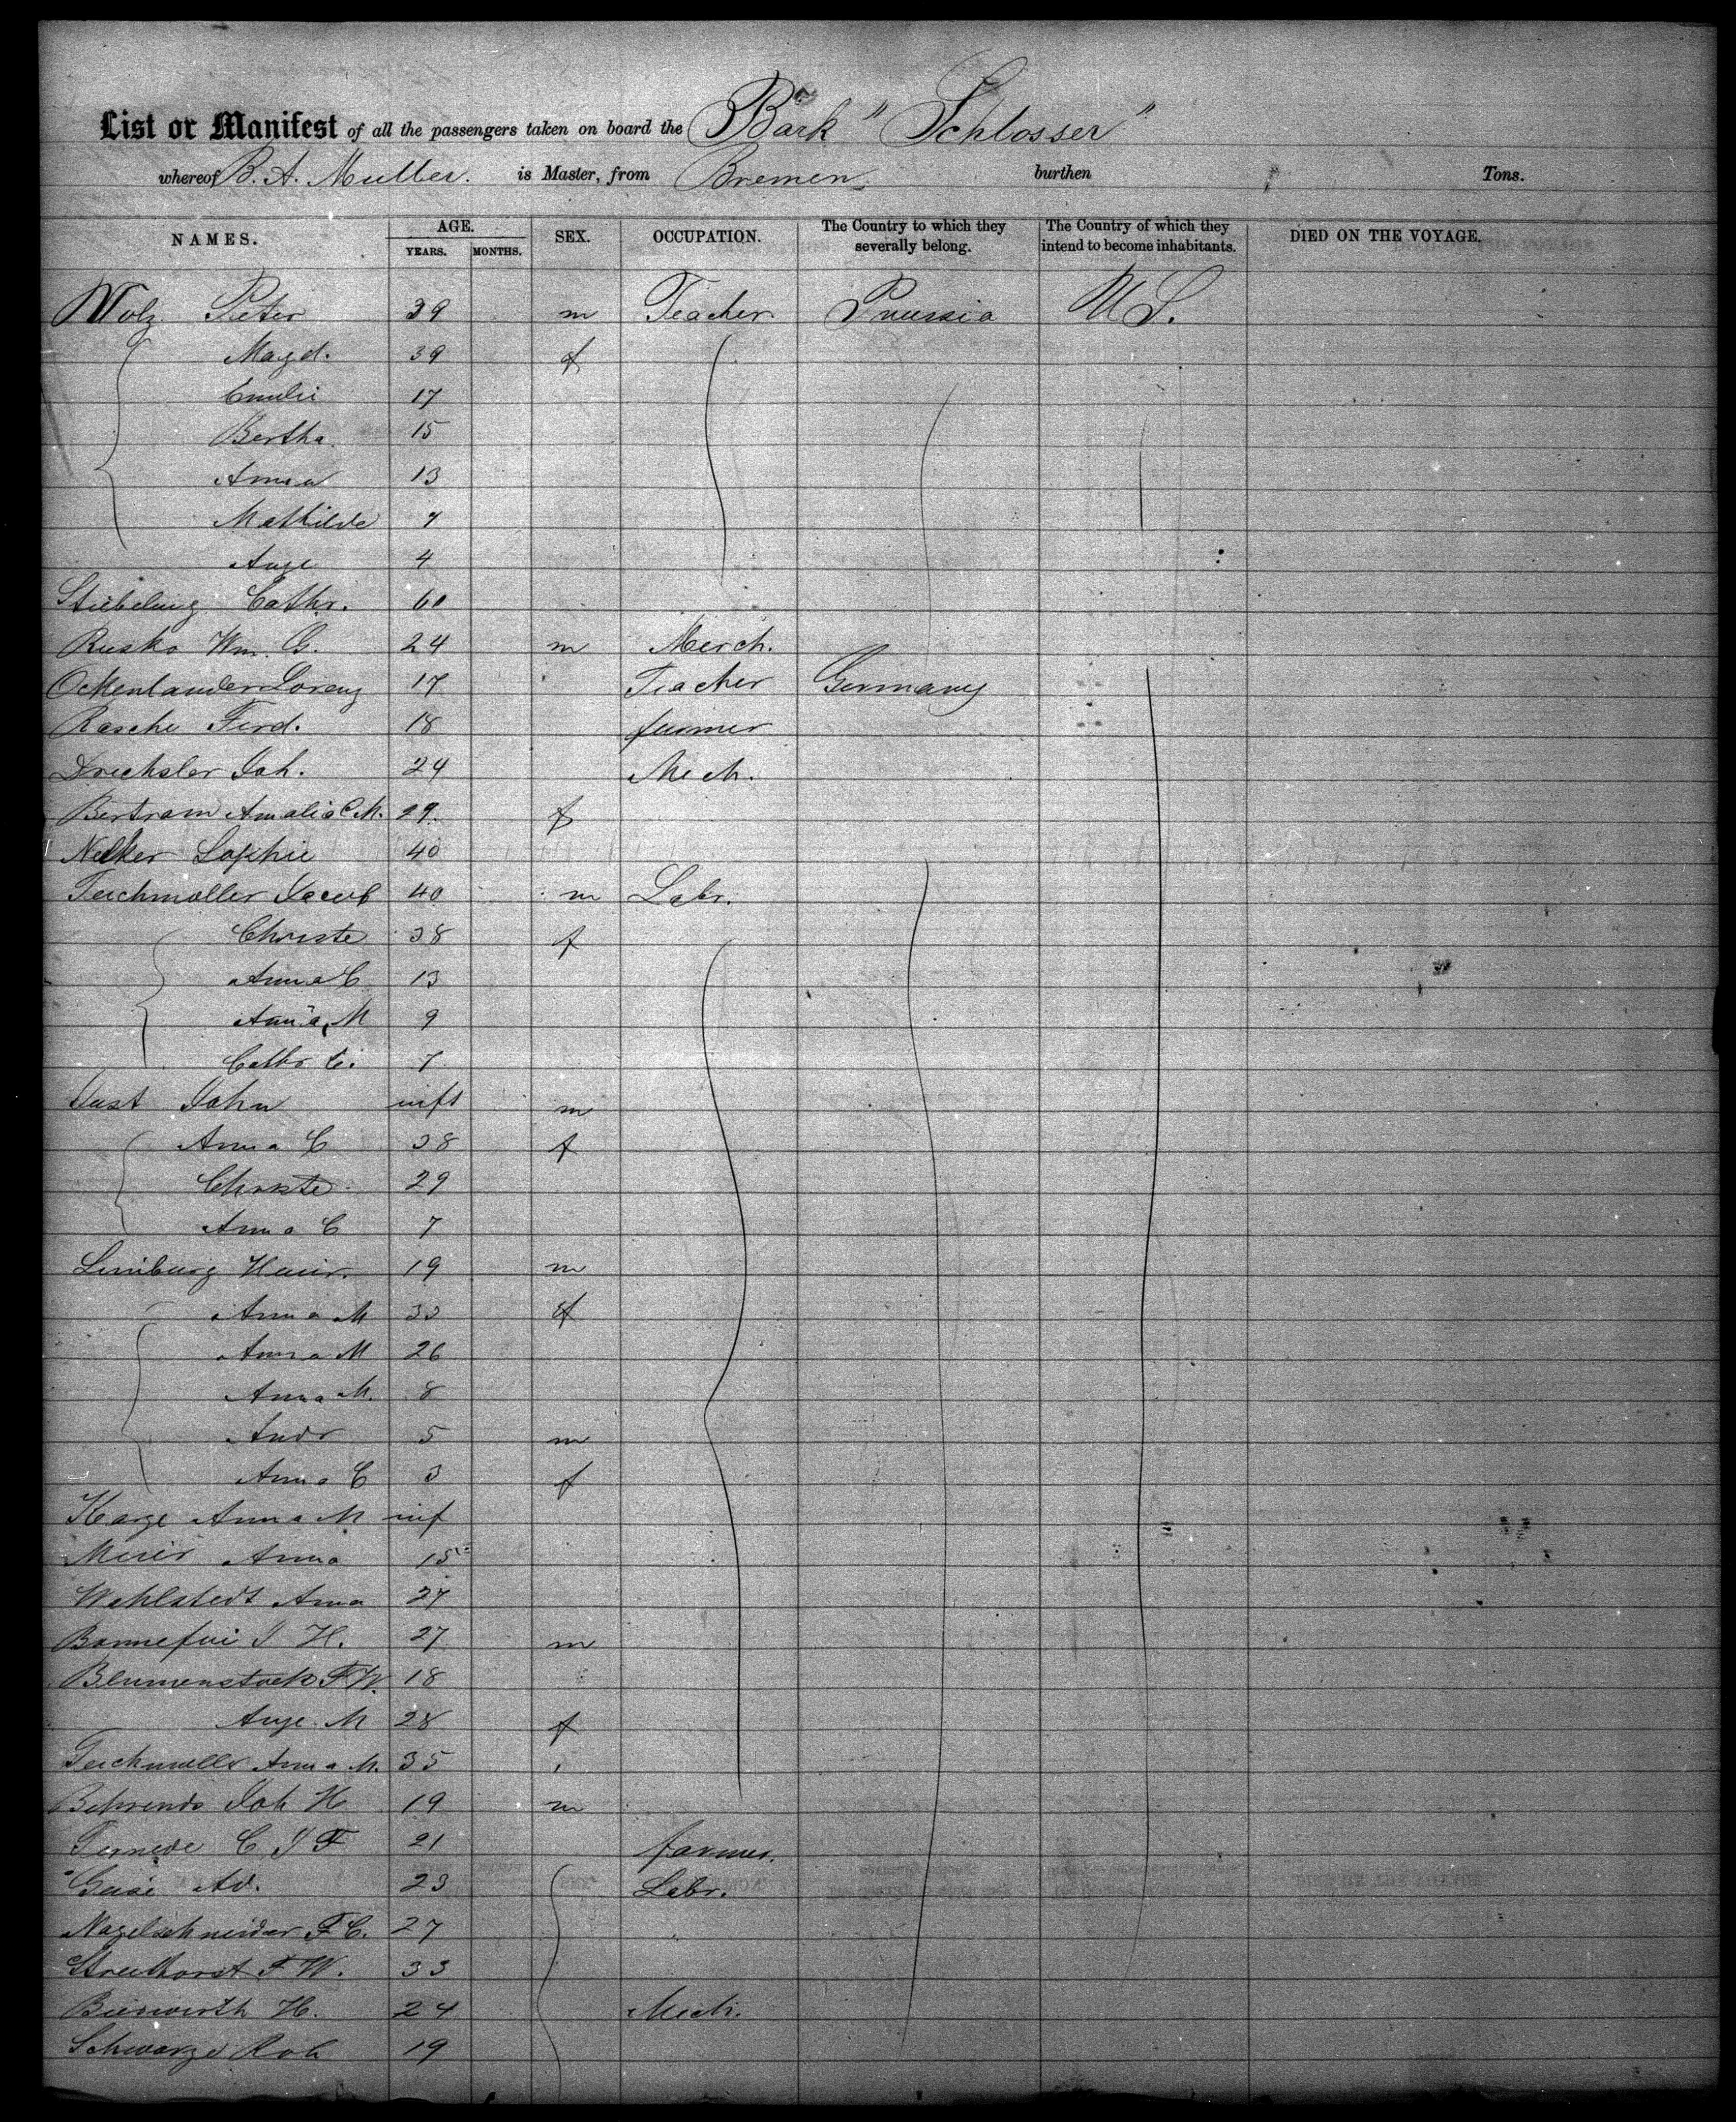 List or Manifest of all the passengers taken on board the Bark "Schlosser"
whereof B. A. Muller. is Master, from Bremen burthen Tons.
NAMES. AGE. YEARS. MONTHS. SEX. OCCUPATION. The Country to which they severally belong. The Country of which they intend to become inhabitants. DIED ON THE VOYAGE.
Peter 39 m Teacher Prussia U S.
Magd. 39 f
Emilie 17
Bertha 15
Anna 13
Mathilde 7
Auge 4
Stiebeling Cathr. 60
Rusko Wm. G. 24 m Merch.
Ockenlander Lorenz 17 Teacher Germany
Rasche Ferd. 18 farmer
Drechsler Joh. 24 Mech.
Bertram Amalia C. M. 29.
f
Sophie 40
Teichmoller Jacob 40 m Labr.
Christe 38 f
Anna C 13
Anna M 9
Cathr E. 7
Just John inft m
Anna C 38 f
Christe 29
Anna C 7
Limburg Heinr. 19 m
Anna M 33 f
Anna M 26
Anna M. 8
Andr 5 m
Anna C 3 f
Karge Anna M inf
Meier Anna 15
Wahlstedt Anna 27
J H. 27 m
Blumenstock F W. 18
Auge. M 28 f
Teichmuller Anna M. 35
Behrends Joh H 19 m
C J F 21 farmer.
Ad. 23 Labr.
Nagelschneider F C. 27 "
Streithorst F W. 33
Bierwirth H. 24 Mech.
Schwarze Rob 19